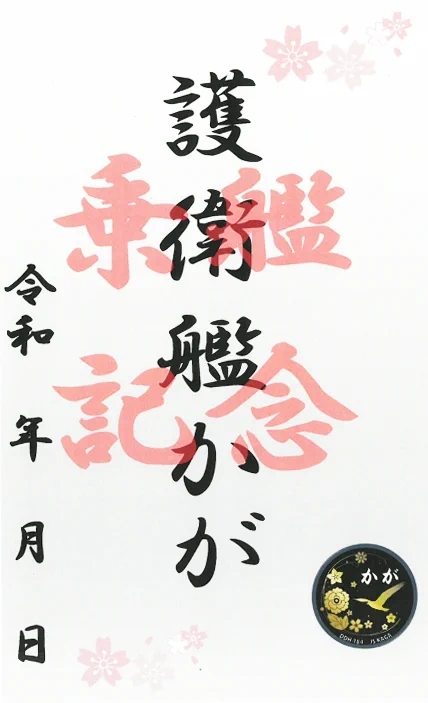 護衛艦かが
乗艦
記念
令和 年 月 日
かが
DDH 184 JS KAGA